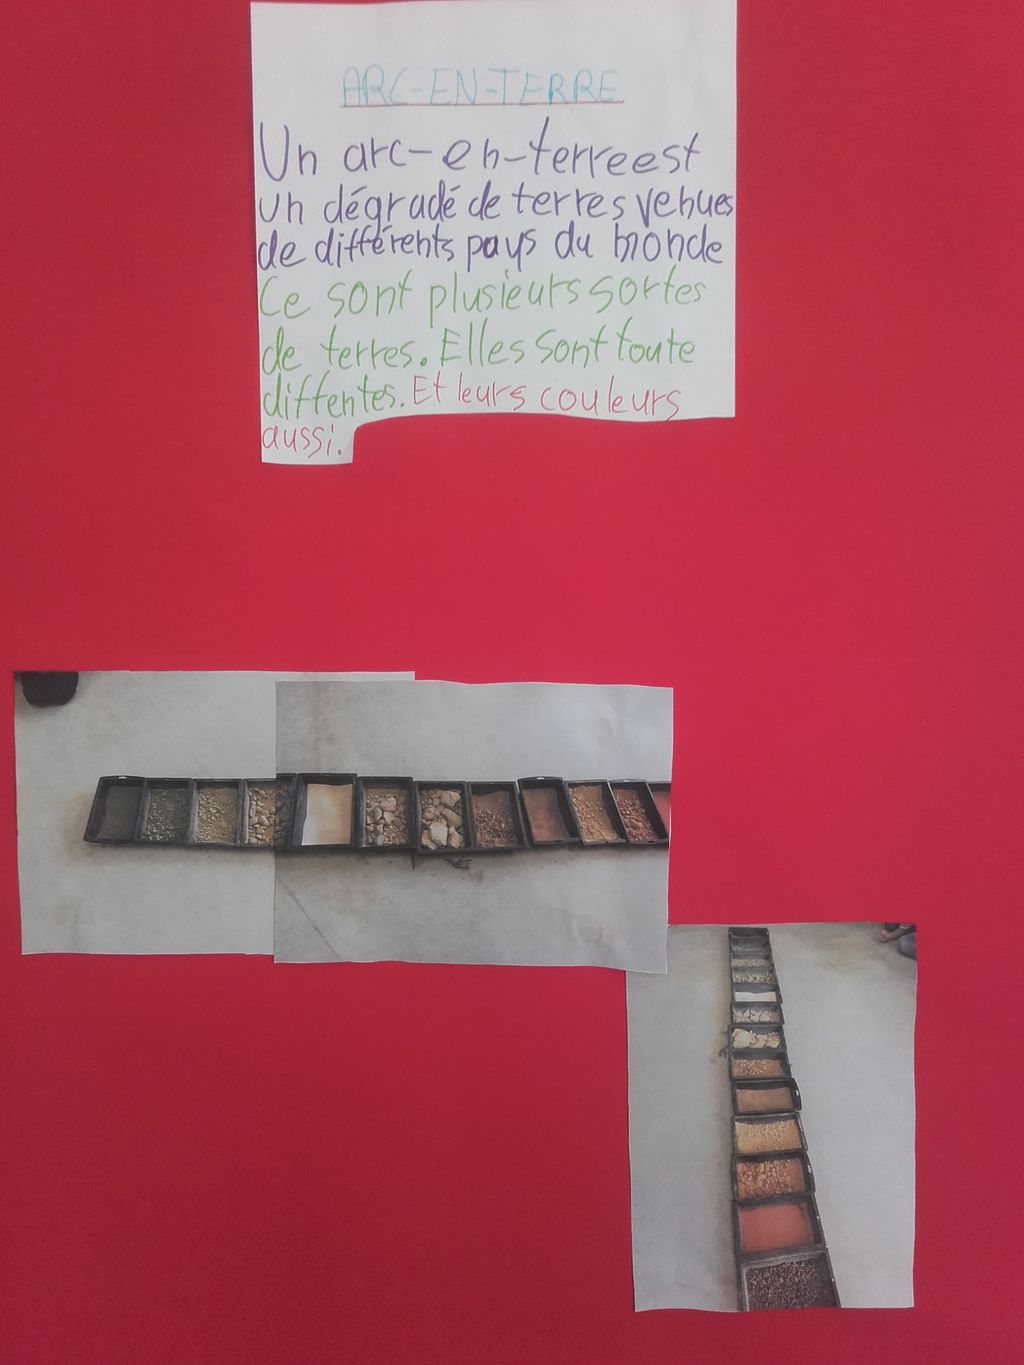 ARC-EN-TERRE
Un arc-en-terreest
un dégradé de terres venues
de différents pays du monde
Ce sont plusieurs sortes
de terres. Elles sont toute
diffentes. Et leurs couleurs
aussi.